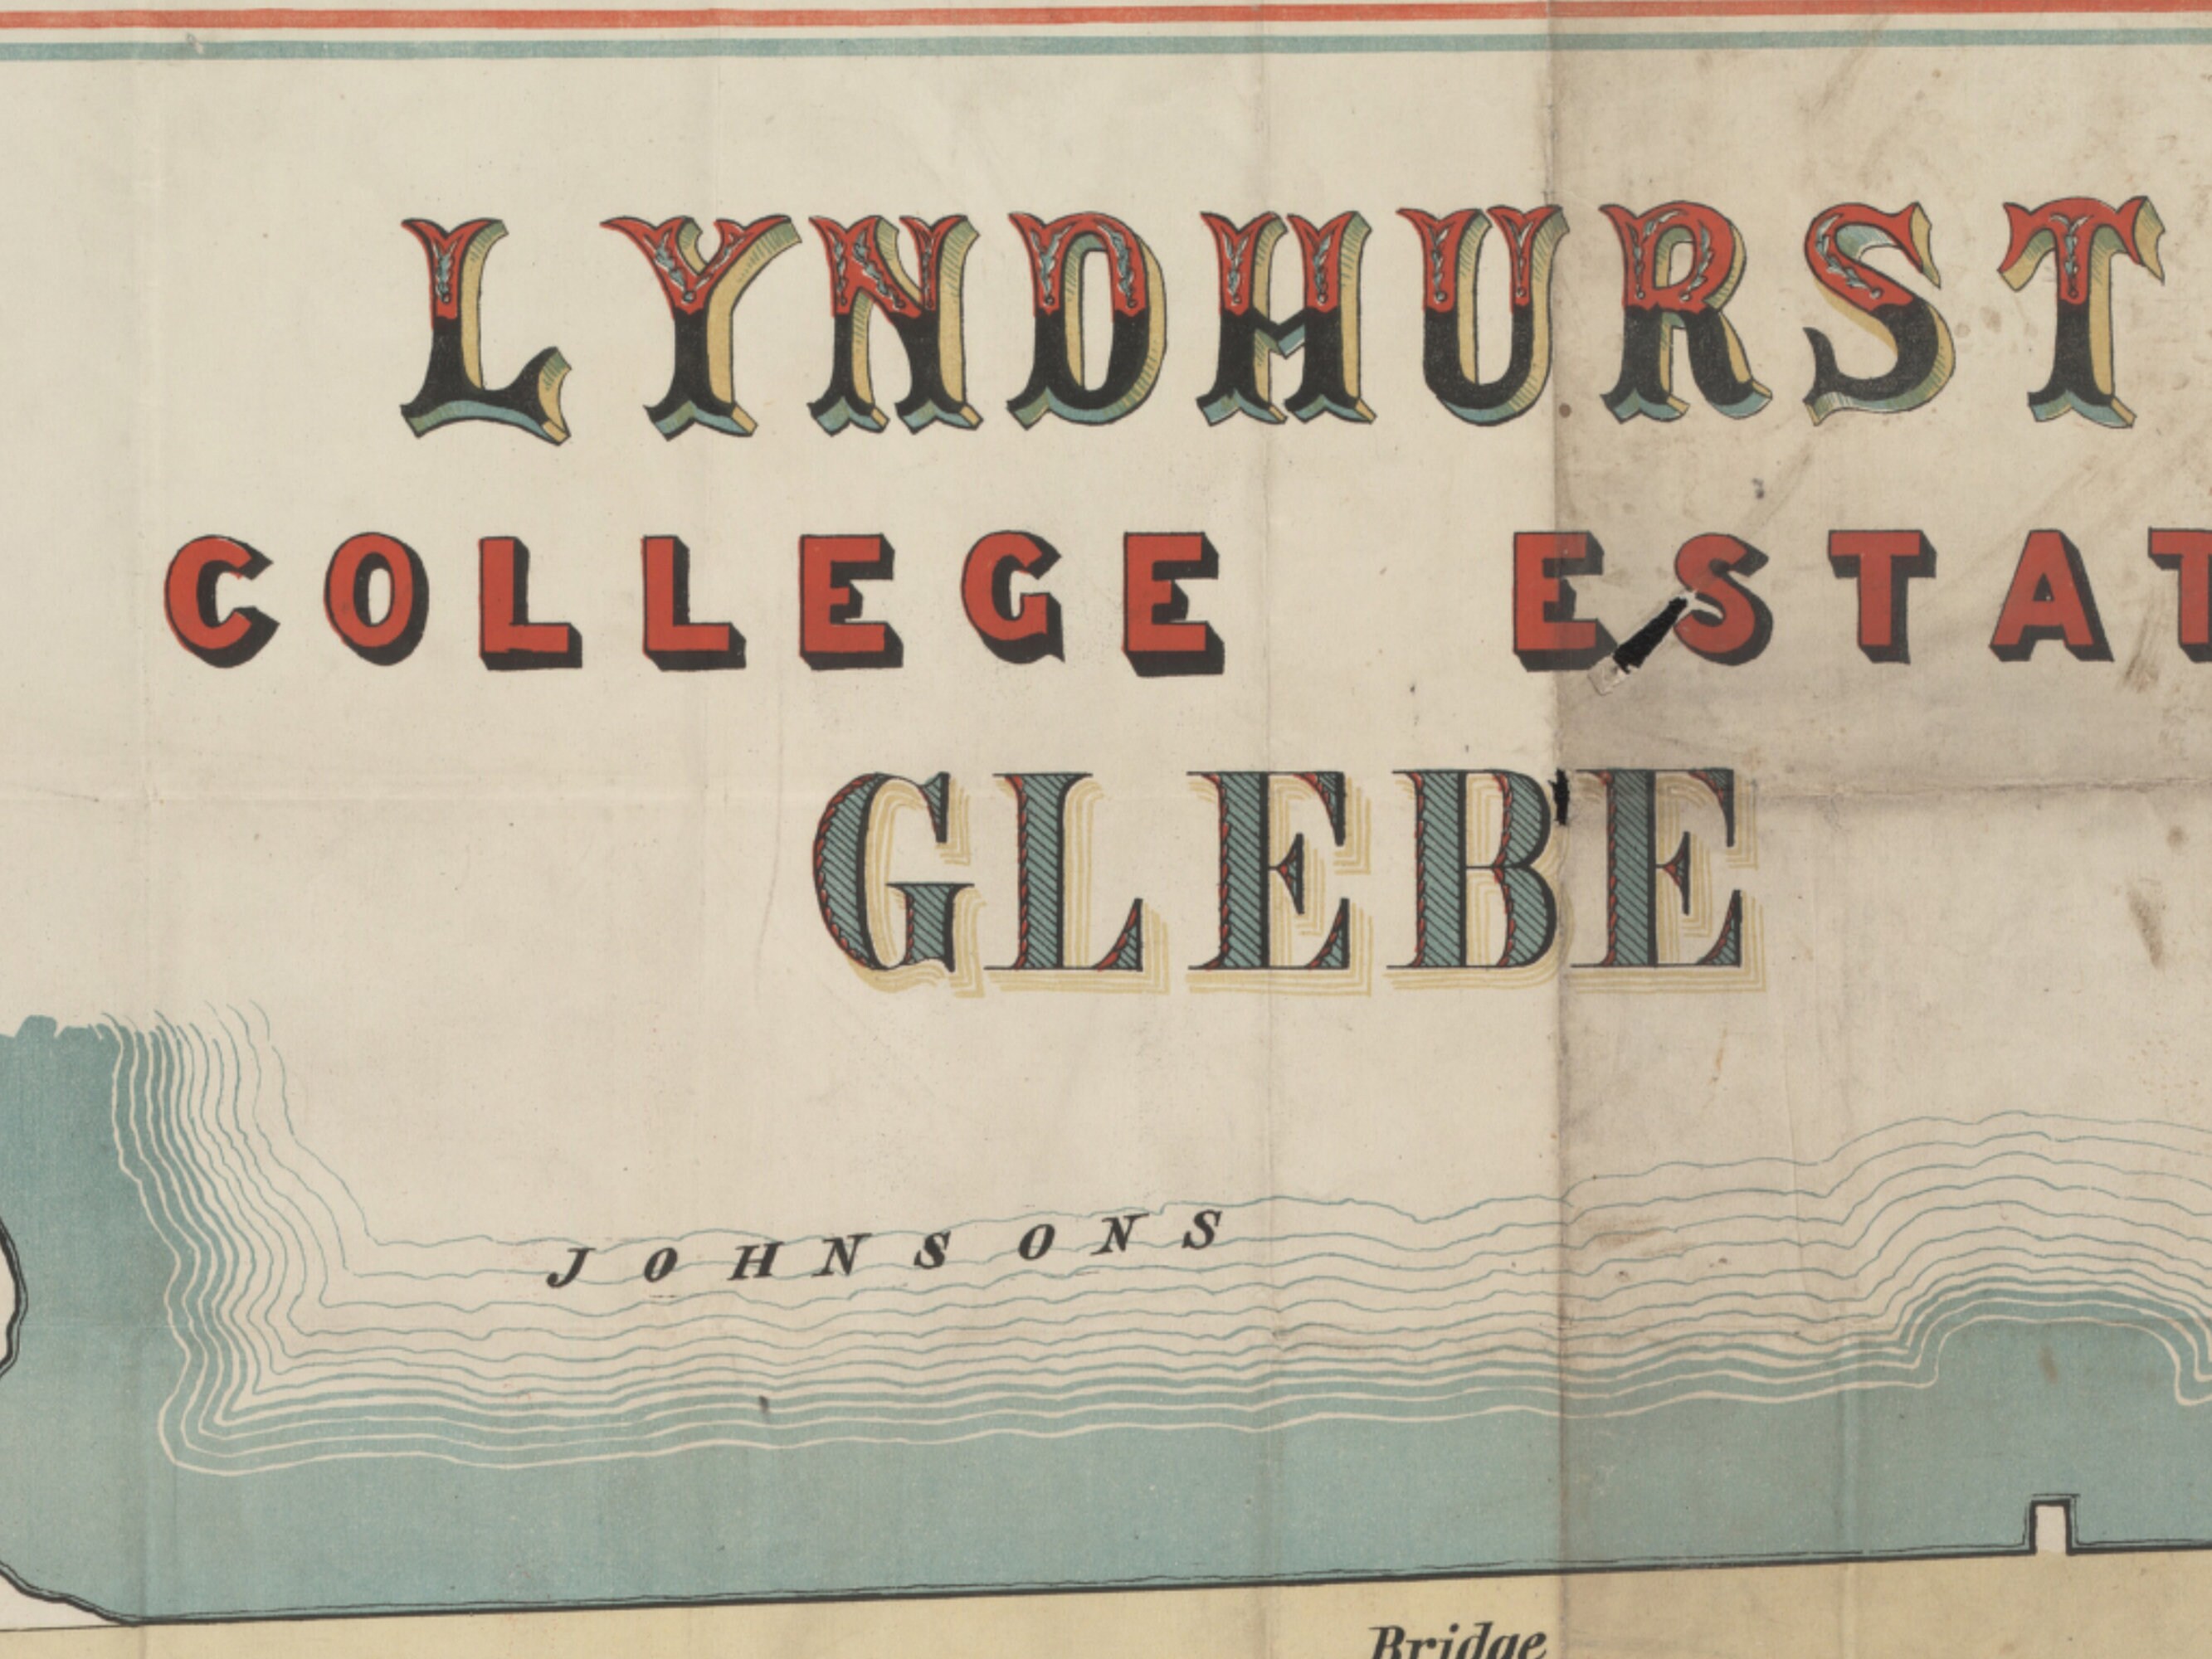 LYNDHURST
COLLEGE ESTAT
GLEBE
JOHNSONS
Bridge